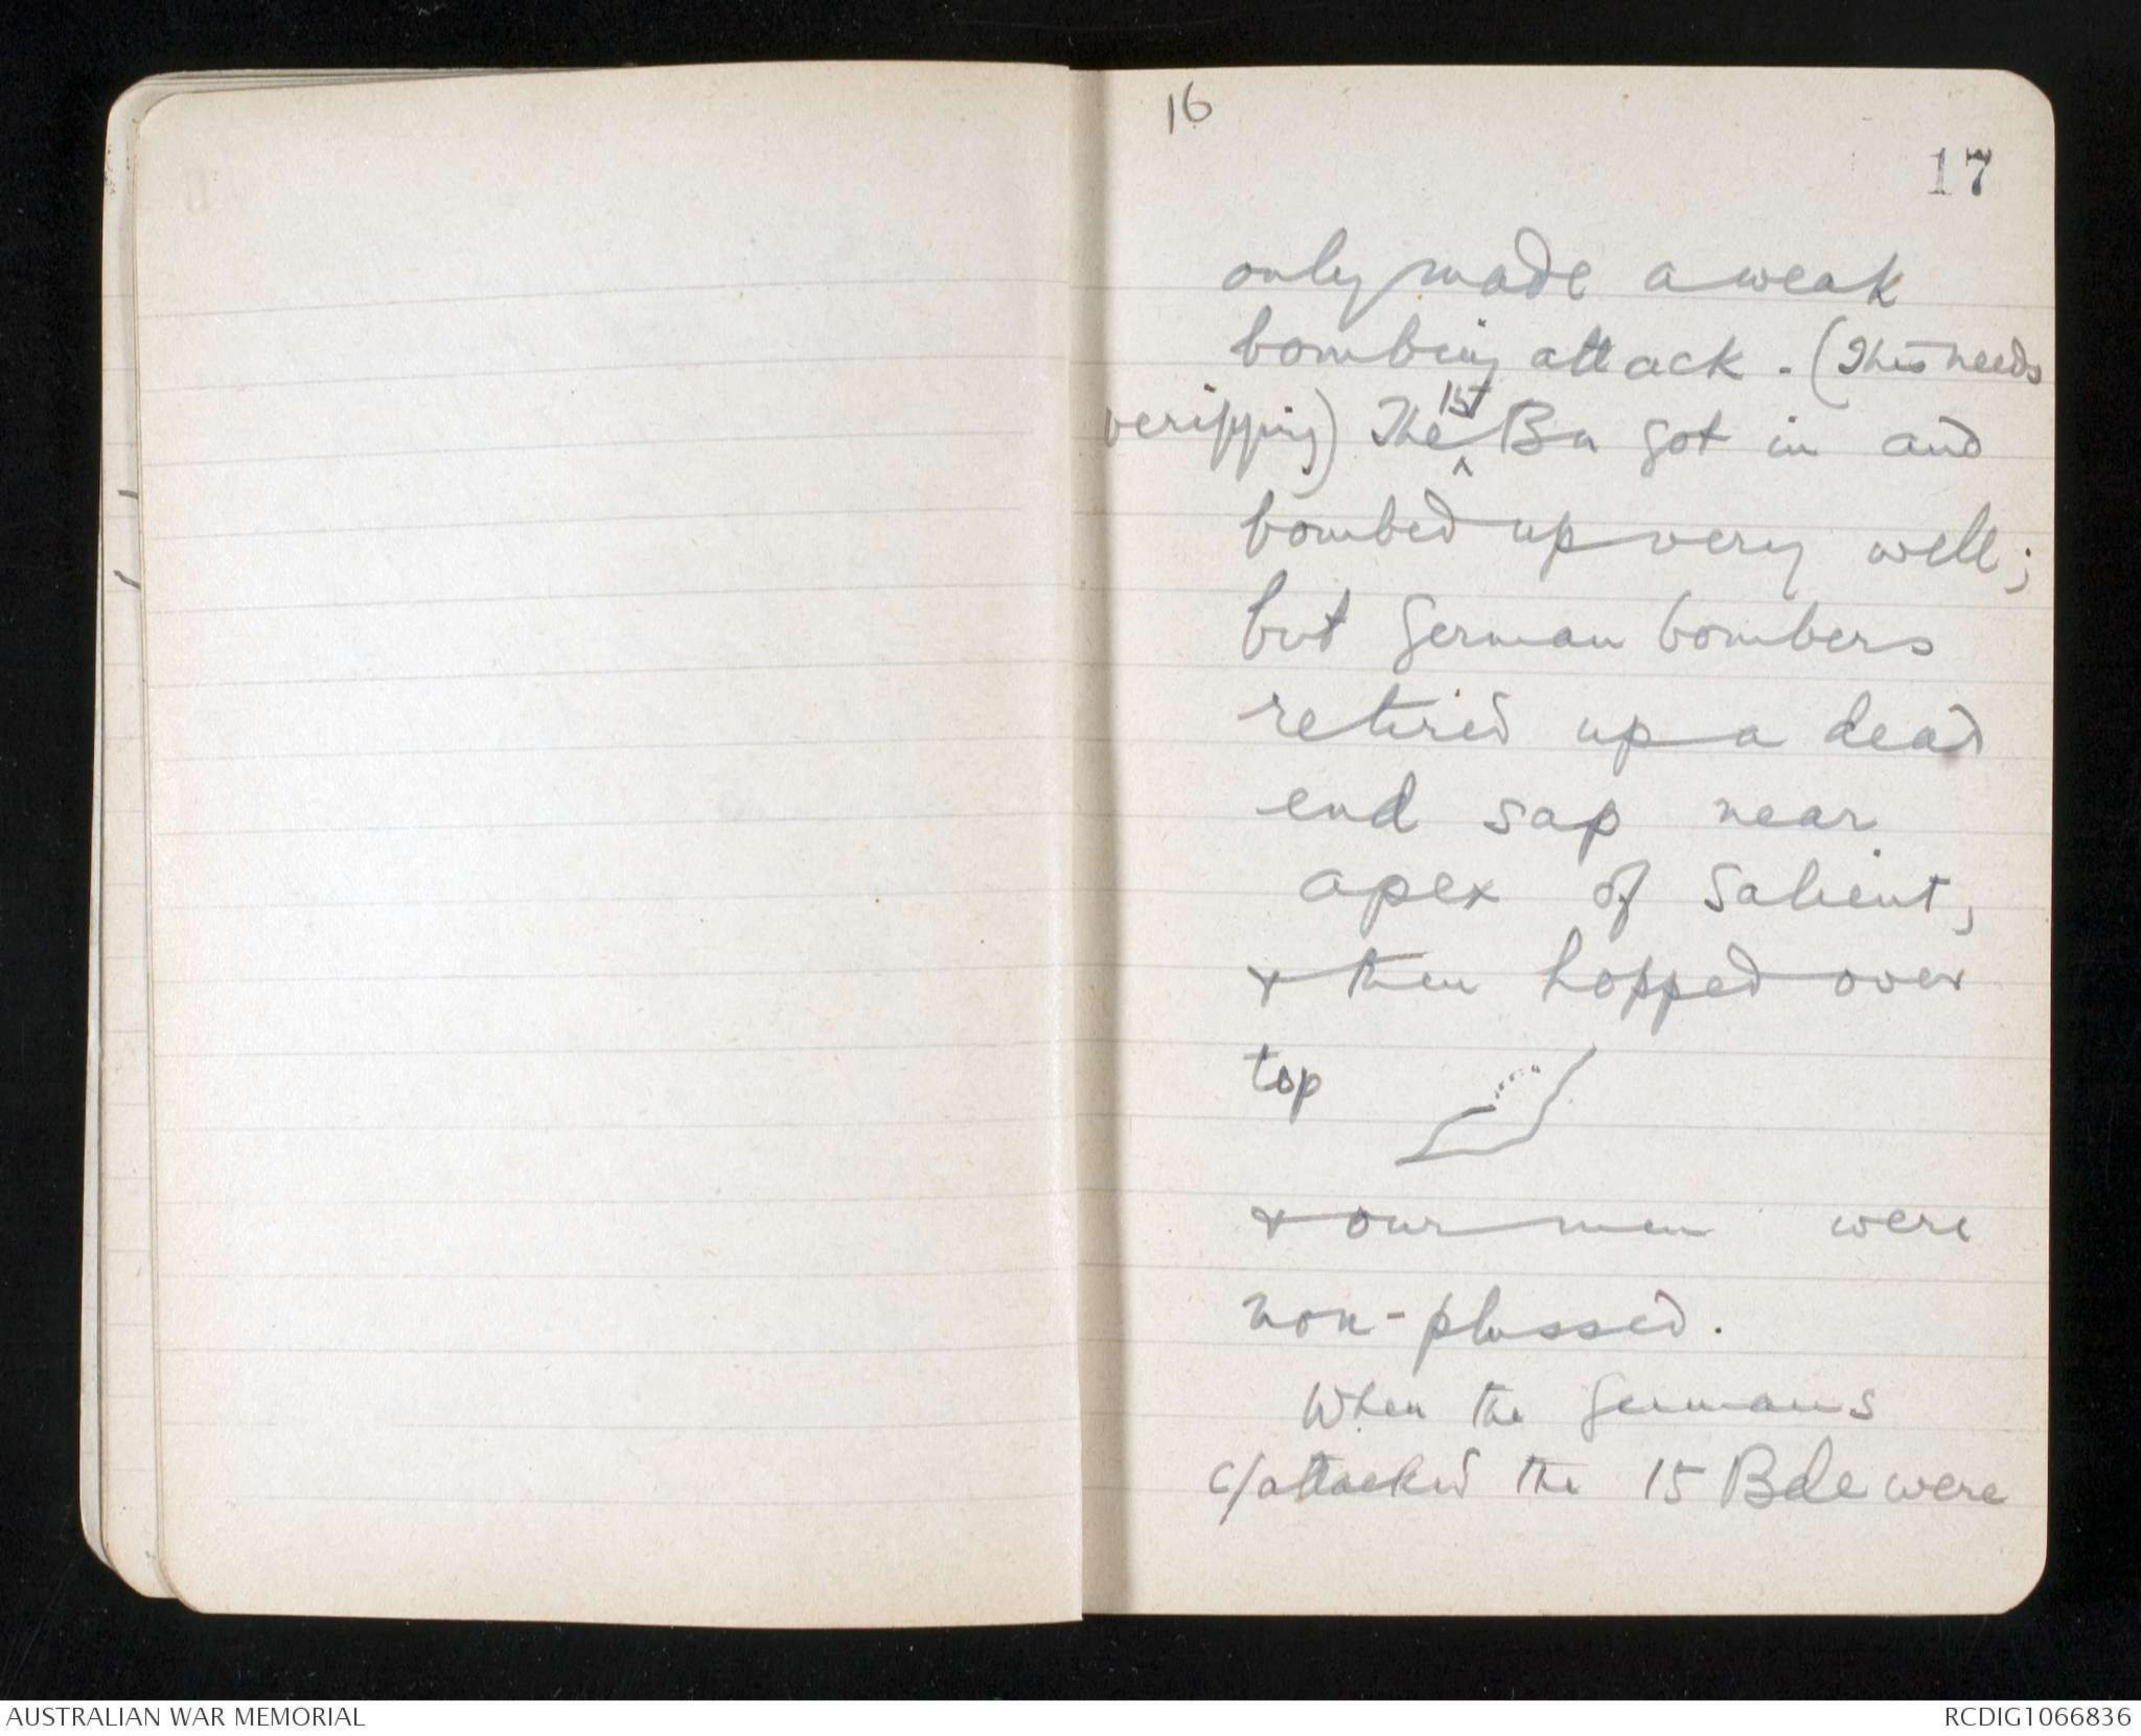 16
17
only made a weak
bombing attack. (This needs
verifying) The 1st Bn got in and
bombed up very well;
but German bombers
retired up a dead
end sap near
apex of Salient,
& then hopped over
top
& our men were
non-plussed.
When the Germans
c/attacked the 15 Bde were
AUSTRALIAN WAR MEMORIAL
RCDIG1066836